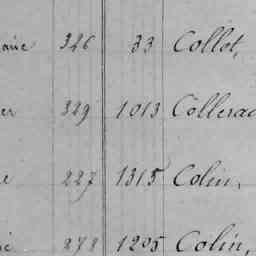 326 33 Collot,
er 329 1013 Collerac
e 227 1315 Colin,
278 1205 Colin,